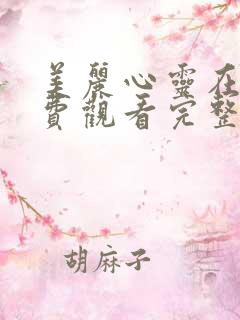 美麗心靈在
費觀看完整
胡麻子